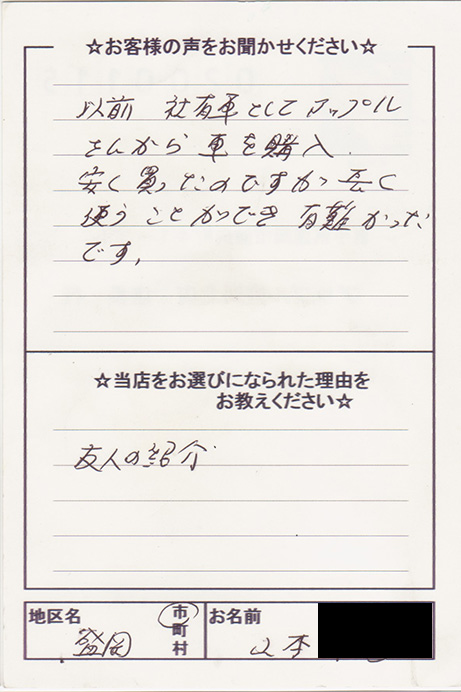 ☆お客様の声をお聞かせください☆
以前 社有車としてアップル
さんから 車を購入
安く買ったのですが長く
使うことができ 有難かった
です。
☆当店をお選びになられた理由を
お教えください☆
友人の紹介
地区名 盛岡 市町村 お名前 山本